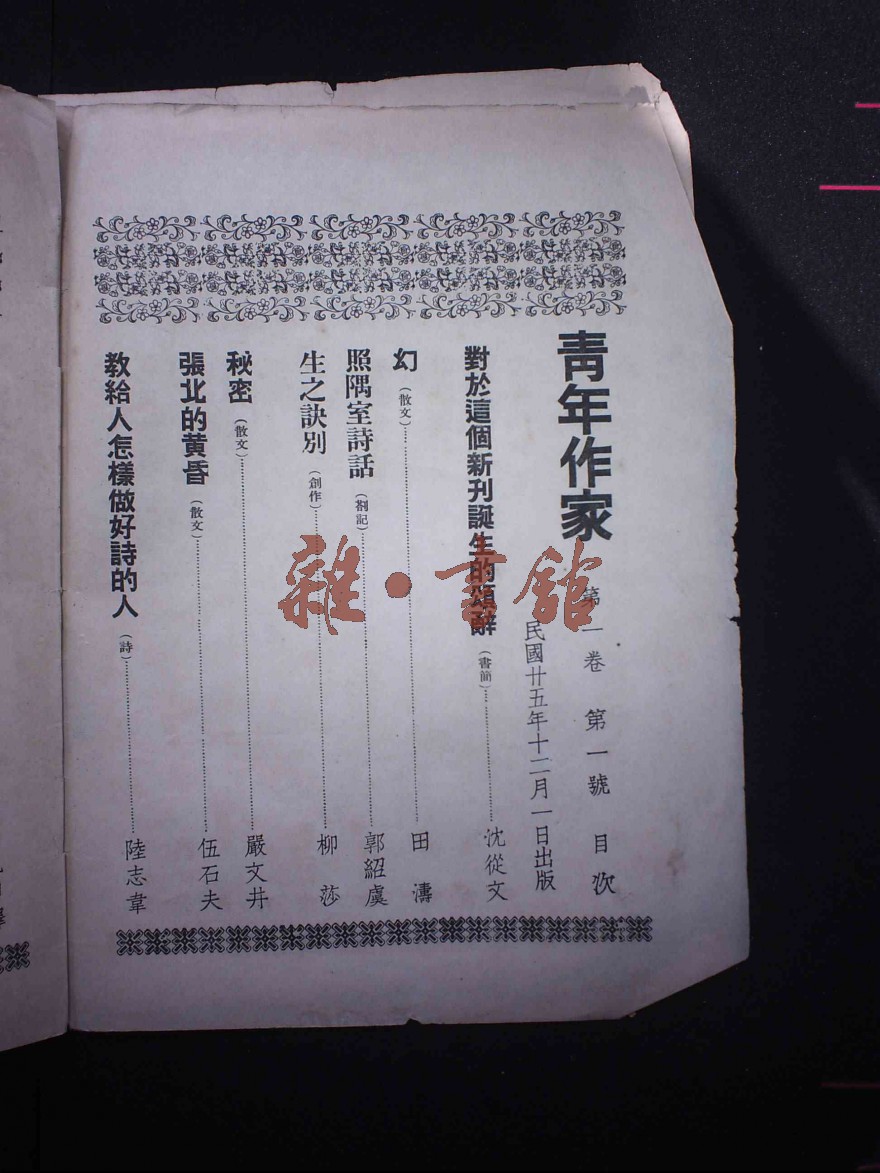 青年作家 第一卷 第一號 目次
民國廿五年十二月一日出版
對於這個新刊誕生的頌辭（書簡）沈從文
幻（散文）田濤
照隅室詩話（劄記）郭紹虞
生之訣別（創作）柳莎
秘密（散文）嚴文井
張北的黃昏（散文）伍石夫
教給人怎樣做好詩的人（詩）陸志韋
雜·書館